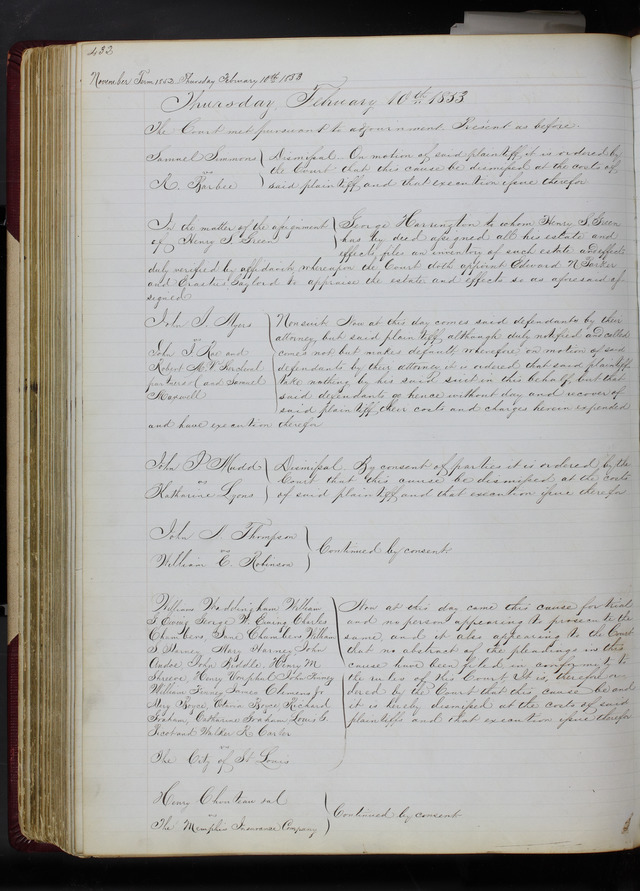 432
November Term 1852 Thursday February 10th 1853
Thursday, February 10th 1853
The Court met pursuant to adjournment. Present as before.
Samuel Simmons
vs
R. Barbee
Dismissal. On motion of said plaintiff, it is ordered by
the Court that this cause be dismissed at the costs of
said plaintiff, and that execution issue therefor
In the matter of the assignment
of Henry S. Green
George Harrington to whom Henry S. Green
has by deed assigned all his estate and
effects, files an inventory of such estate and effects
duly verified by affidavit, whereupon the Court doth appoint Edward N. Parker
and Gaylord to appraise the estate and effects so as aforesaid as=
signed
John S. Myers
vs
John T. Rae and
Robert M. Percival
and Samuel
Maxwell
Nonsuit. Now at this day comes said defendants by their
attorney, but said plaintiff, although duly notified and called
comes not but makes default, wherefore on motion of said
defendants by their attorney it is ordered that said plaintiff
take nothing by his said suit in this behalf but that
said defendants go hence without day and recover of
said plaintiff their costs and charges herein expended
and have execution therefor
John P. Mudd
vs
Katharine Lyons
Dismissal. By consent of parties it is ordered by the
Court that this cause be dismissed at the costs
of said plaintiff and that execution issue therefor
John S. Thompson
vs
William E. Robinson
Continued by consent.
William Waddingham William
S Ewing George W. Ewing Charles
Chambers, Jane Chambers William
S. Harney Mary Harney John
John Riddle, Henry M
Shreve, Henry John Finney
William Finney James Clemens Jr
Mary Boyce, Octavia Boyce Richard
Graham, Catharine Graham Louis G.
Picot and Walker R. Carter
vs
The City of St Louis
Now at this day came this cause for trial
and no person appearing to prosecute the
same, and it also appearing to the Court
that no abstract of the pleadings in this
cause have been filed in conformity to
the rules of this Court. It is, therefore or=
dered by the Court that this cause be and
it is hereby dismissed at the costs of said
plaintiffs and that execution issue therefor
Henry Chouteau et al
vs
The Memphis Insurance Company
Continued by consent